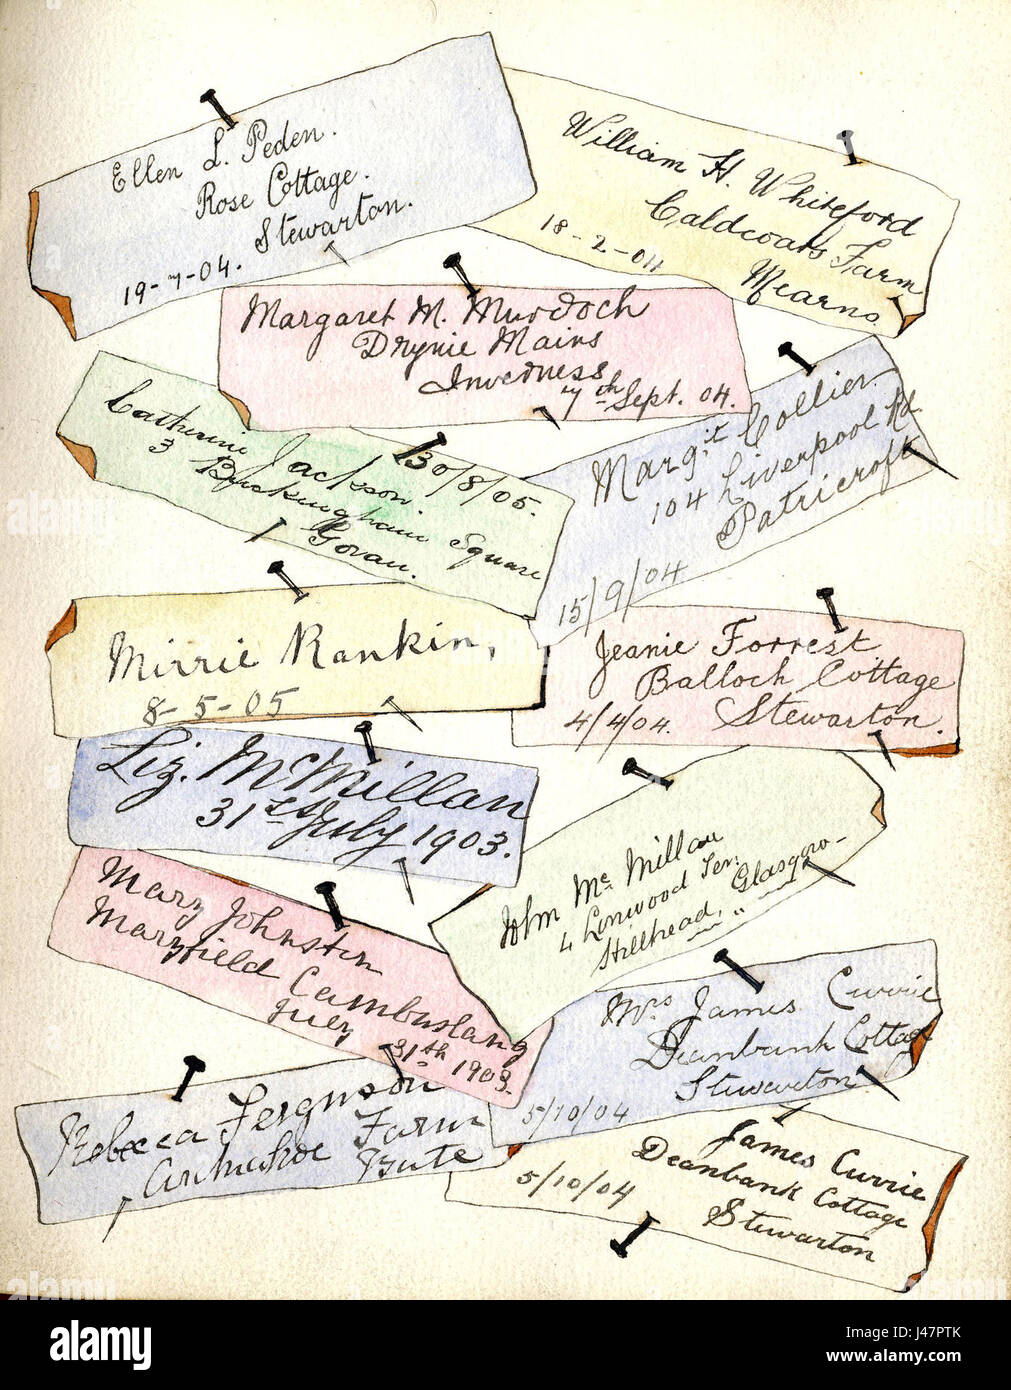 Ellen L. Peden.
Rose Cottage.
Stewarton.
19-7-04.
William H. Whiteford
Caldcoats Farm
Mearns.
18-2-04
Margaret M. Murdoch
Drynie Mains
Inverness
7th Sept. 04.
Catherine Jackson.
3 Buckingham Square
Govan.
30/8/05.
Margit Collier.
104 Liverpool Rd
Patricroft
15/9/04
Mirrie Rankin,
8-5-05
Jeanie Forrest
Balloch Cottage
Stewarton.
4/4/04.
Liz. McMillan
31st July 1903.
John Mc Millan
4 Linwood Ter.
Hillhead, Glasgow
Mary Johnston
Maryfield Cambuslang
July 31th 1903.
Mrs James Currie
Deanbank Cottage
Stewarton
5/10/04
Rebecca Ferguson
Farm
Bute
James Currie
Deanbank Cottage
Stewarton
5/10/04
alamy
Image ID: J47PTK
www.alamy.com